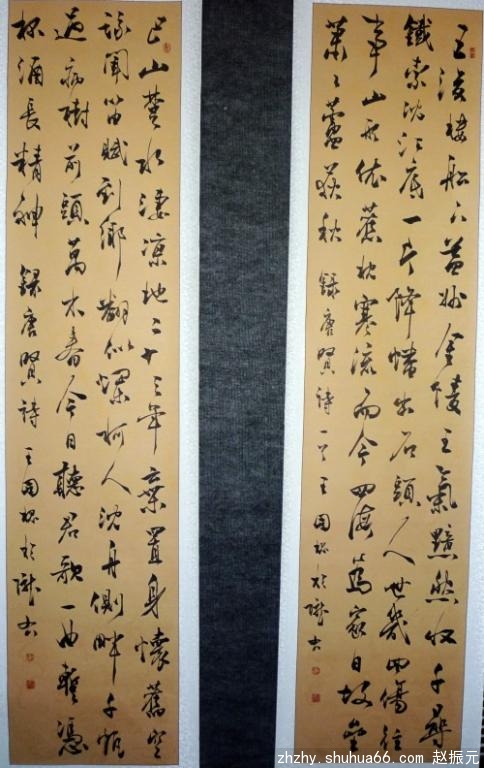 王浚樓船下益州金陵王氣黯然收千尋
鐵索沈江底一片降幡出石頭人世幾回傷往
事山形依舊枕寒流而今四海為家日故壘
萧々蘆荻秋 録唐賢詩一首 王國 於
巴山楚水淒涼地二十三年棄置身懷舊空
吟聞笛賦到鄉翻似爛柯人沈舟側畔千帆
過病樹前頭萬木春今日聽君歌一曲暫憑
杯酒長精神 録唐賢詩 王國 於
zhzhy.shuhua66.com 赵振元